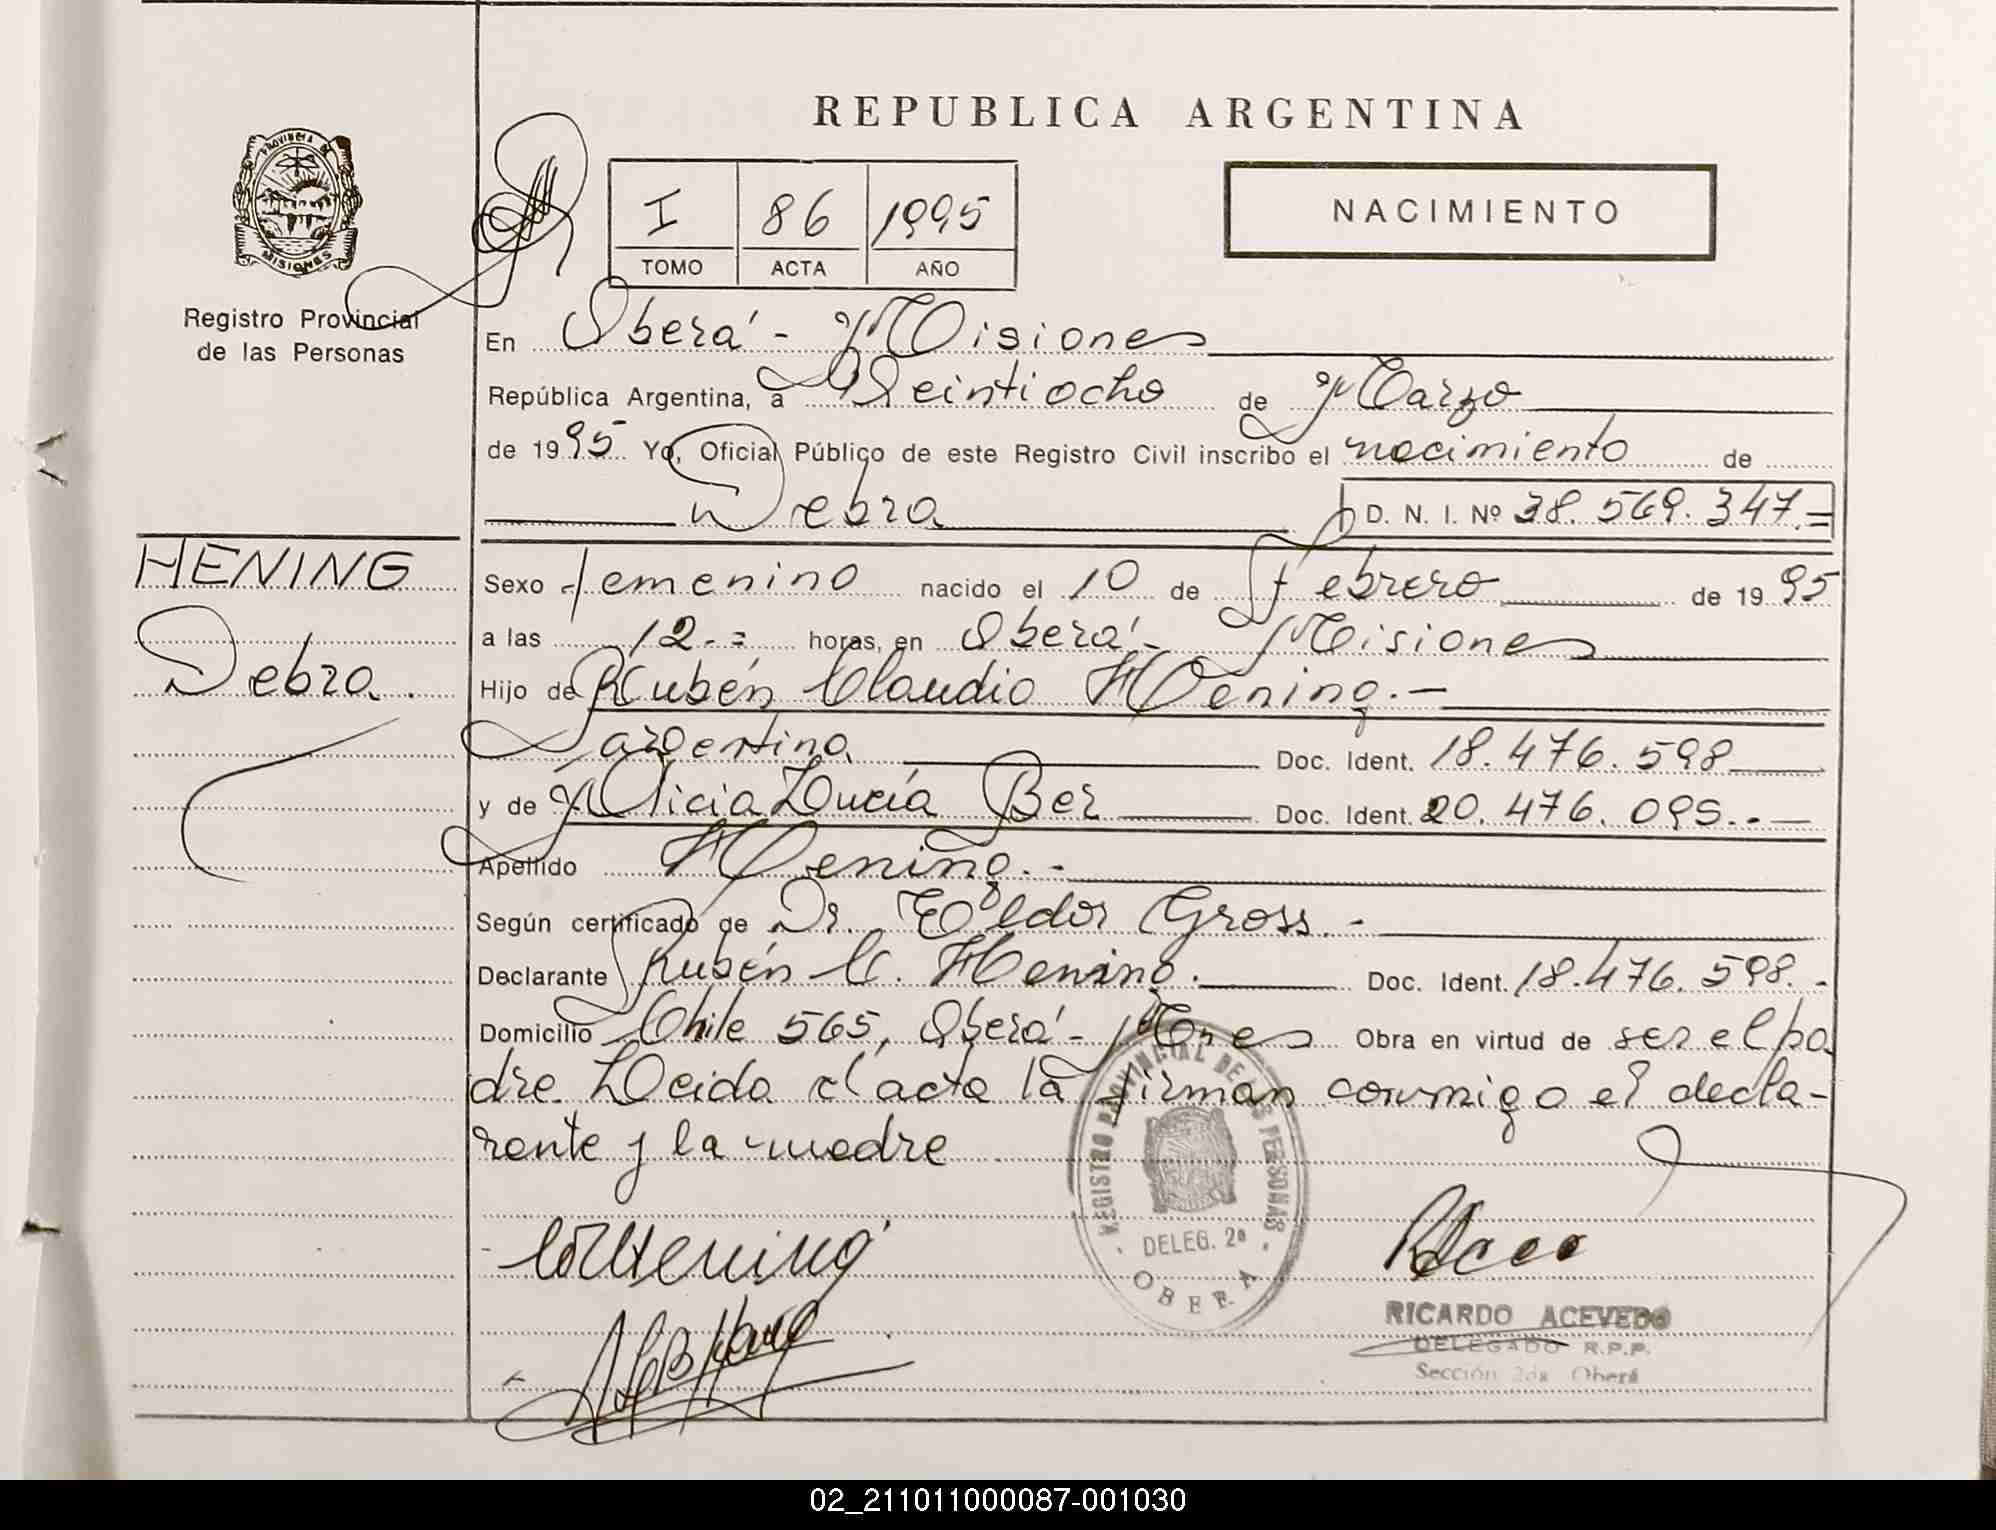 REPUBLICA ARGENTINA
PROVINCIA DE
MISIONES
Registro Provincial
de las Personas
I 86 1995
TOMO ACTA AÑO
NACIMIENTO
En Oberá - Misiones
República Argentina, a Veintiocho de Marzo
de 1995 Yo, Oficial Público de este Registro Civil inscribo el nacimiento de
Debra D. N. I. Nº 38.569.347.=
HENING
Debra.
Sexo femenino nacido el 10 de Febrero de 1995
a las 12.= horas, en Oberá - Misiones
Hijo de Rubén Claudio Hening.-
argentina Doc. Ident. 18.476.598
y de Alicia Lucía Ber Doc. Ident. 20.476.095.-
Apellido Hening.-
Según certificado de Dr. Eldor Gross.-
Declarante Rubén C. Hening. Doc. Ident. 18.476.598.-
Domicilio Chile 565, Oberá - Mnes Obra en virtud de ser el pa
dre. Leida el acta la firman conmigo el decla-
rante y la madre
REGISTRO PROVINCIAL DE LAS PERSONAS
DELEG. 2ª
OBERA
Hening
RICARDO ACEVEDO
DELEGADO R.P.P.
Sección 2da Oberá
02_211011000087-001030